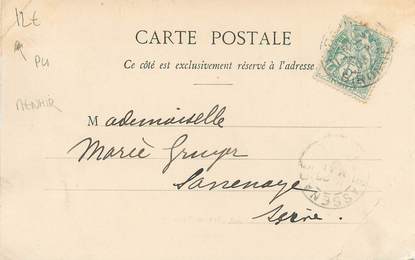 12€
PU
MENHIR
CARTE POSTALE
Ce côté est exclusivement réservé à l'adresse
Mademoiselle
Marie Gruyer
Sassenage
Isère.
SASSEN